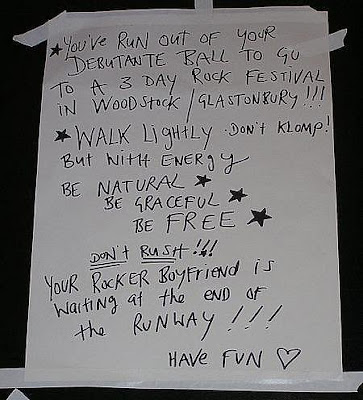 ★ You've Run out of Your
Debutante Ball to Go
to a 3 day Rock Festival
in Woodstock / Glastonbury!!!
★ Walk Lightly Don't Klomp!
But with Energy
Be Natural ★
Be Graceful ★
Be Free ★
Don't Rush!!!
Your Rocker Boyfriend is
waiting at the end of
the Runway!!!
Have Fun ♡